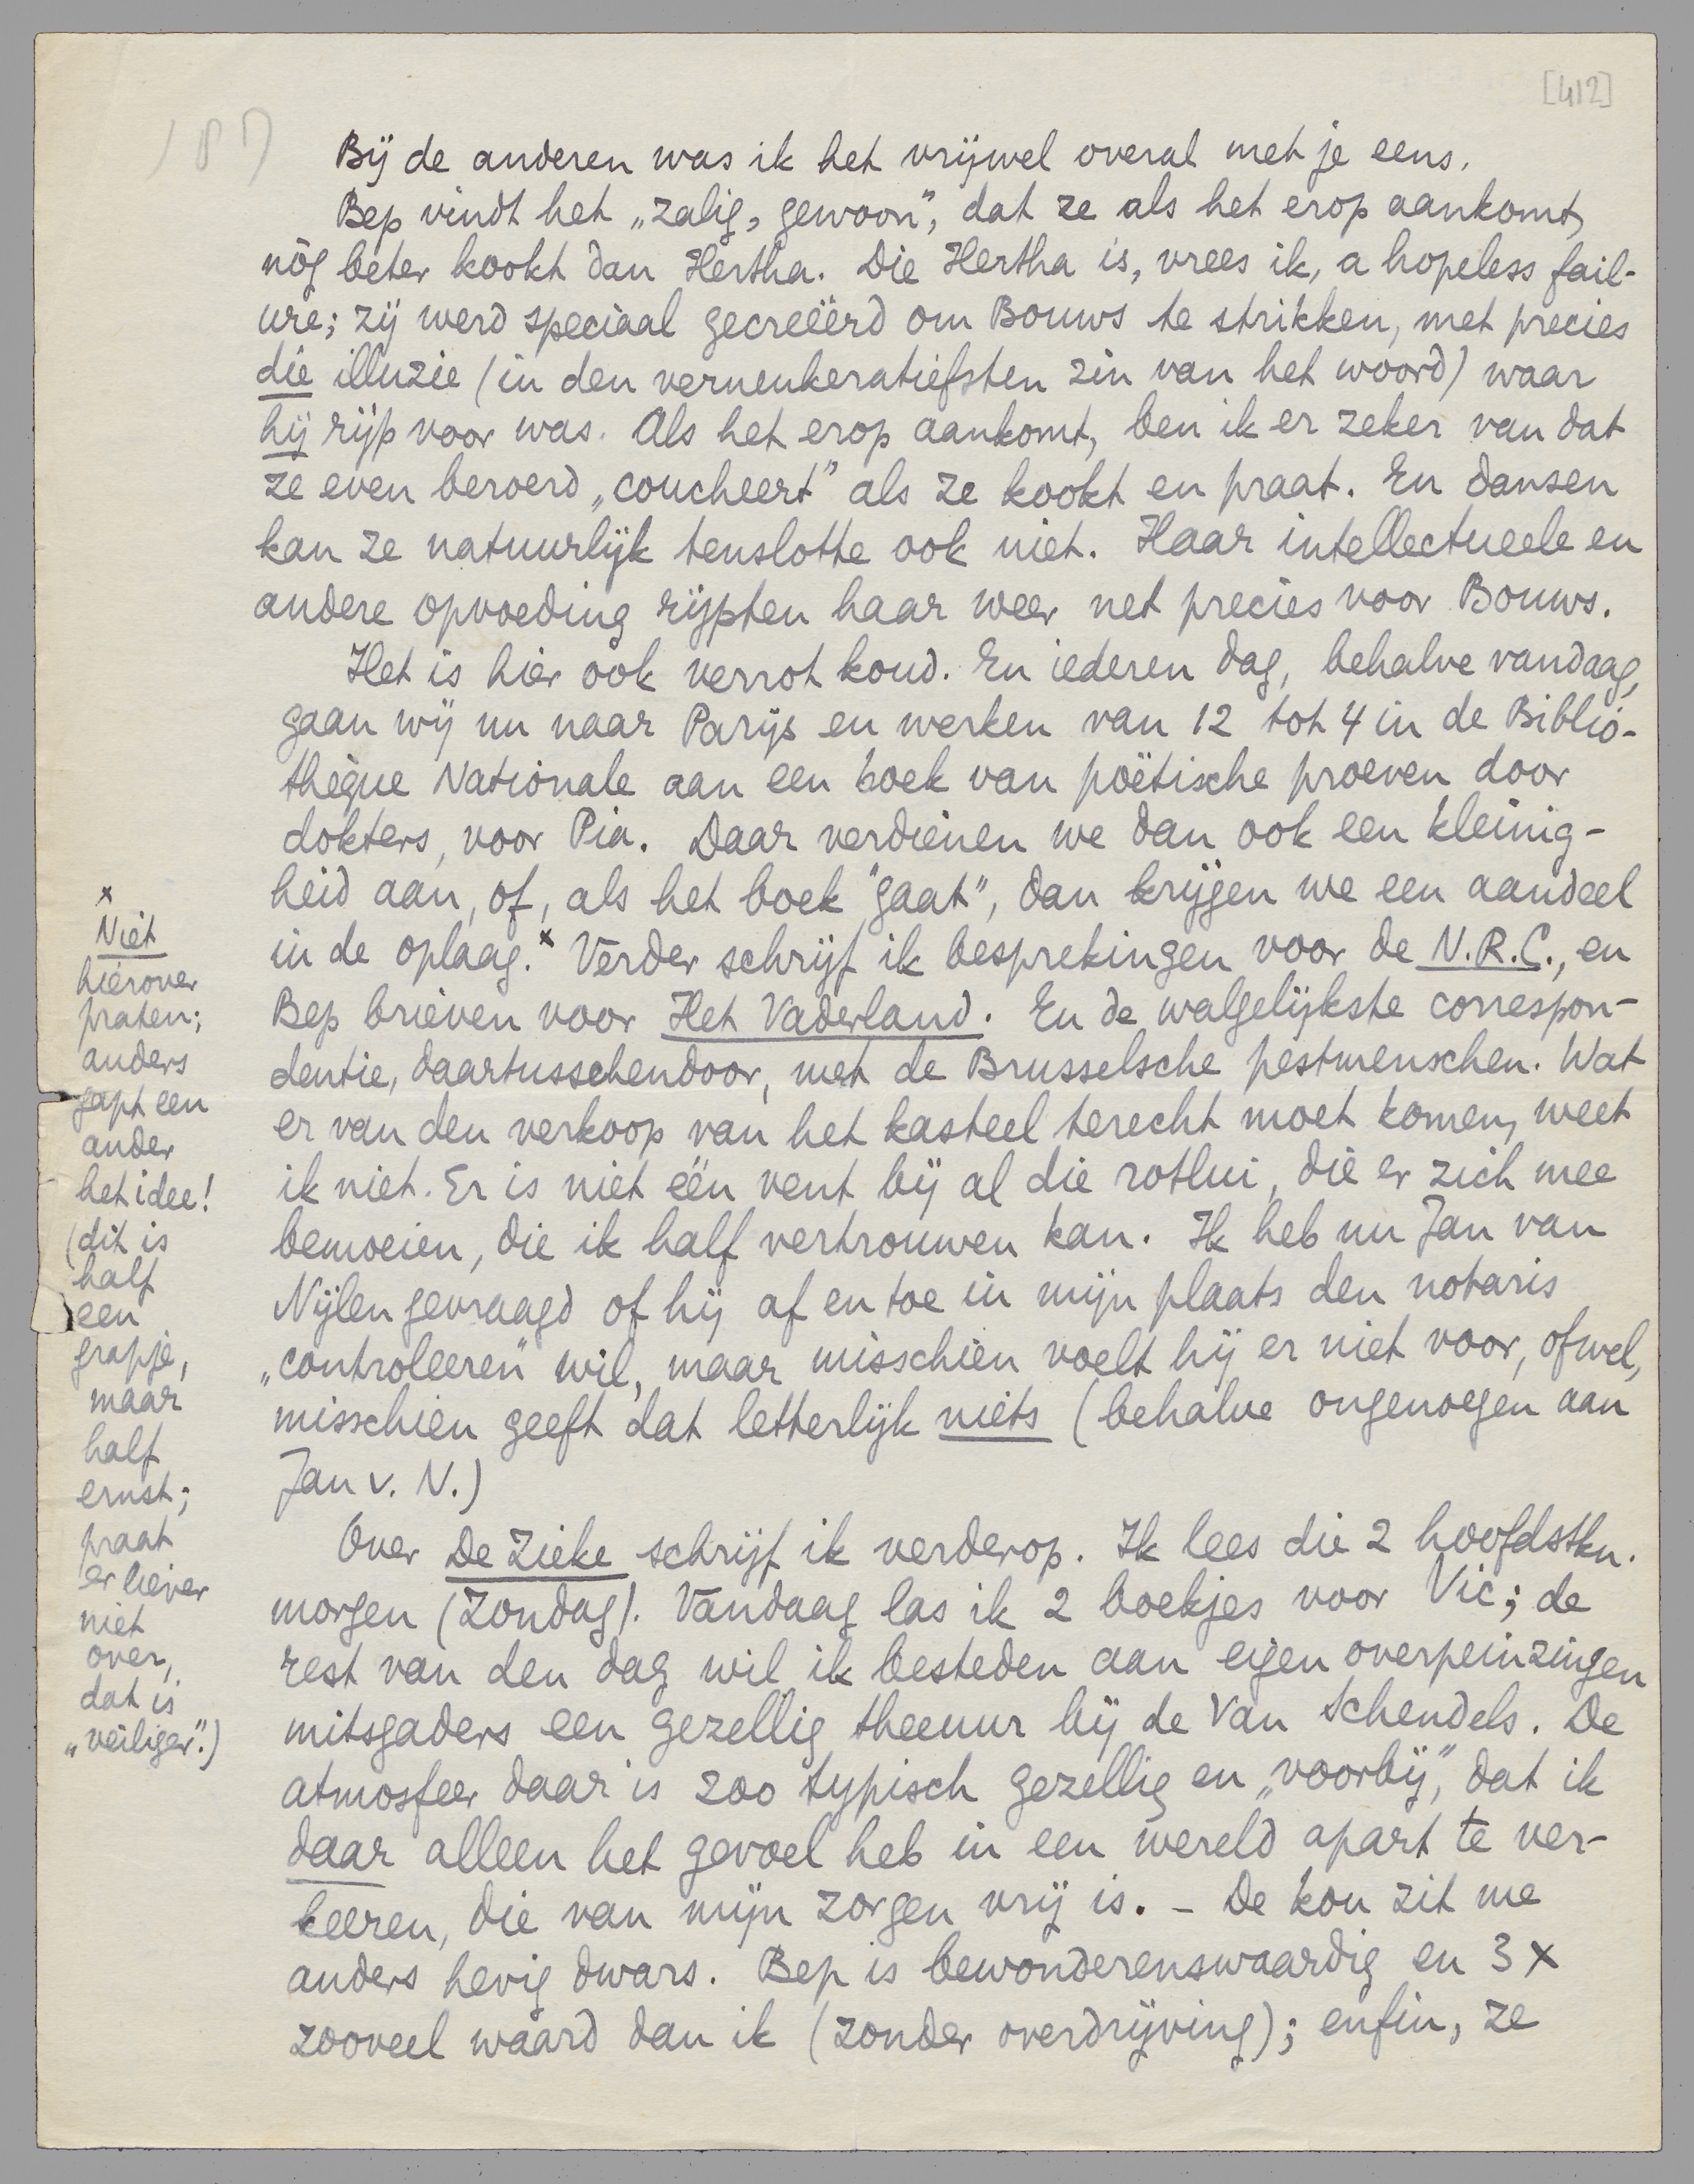 [412]
187
Bij de anderen was ik het vrijwel overal met je eens.
Bep vindt het „zalig, gewoon", dat ze als het erop aankomt,
nòg beter kookt dan Hertha. Die Hertha is, vrees ik, a hopeless fail-
ure; zij werd speciaal gecreëerd om Bouws te strikken, met precies
die illuzie (in den verneukeratiefsten zin van het woord) waar
hij rijp voor was. Als het erop aankomt, ben ik er zeker van dat
ze even beroerd „coucheert" als ze kookt en praat. En dansen
kan ze natuurlijk tenslotte ook niet. Haar intellectueele en
andere opvoeding rijpten haar weer net precies voor Bouws.
Het is hier ook verrot koud. En iederen dag, behalve vandaag,
gaan wij nu naar Parijs en werken van 12 tot 4 in de Biblio-
thèque Nationale aan een boek van poëtische proeven door
dokters, voor Pia. Daar verdienen we dan ook een kleinig-
heid aan, of, als het boek "gaat", dan krijgen we een aandeel
in de oplaag.x Verder schrijf ik besprekingen voor de N.R.C., en
Bep brieven voor Het Vaderland. En de walgelijkste correspon-
dentie, daartusschendoor, met de Brusselsche pestmenschen. Wat
er van den verkoop van het kasteel terecht moet komen, weet
ik niet. Er is niet één vent bij al die rotlui, die er zich mee
bemoeien, die ik half vertrouwen kan. Ik heb nu Jan van
Nijlen gevraagd of hij af en toe in mijn plaats den notaris
„controleeren" wil, maar misschien voelt hij er niet voor, ofwel,
misschien geeft dat letterlijk niets (behalve ongenoegen aan
Jan v. N.)
Over De Zieke schrijf ik verderop. Ik lees die 2 hoofdstkn.
morgen (Zondag). Vandaag las ik 2 boekjes voor Vic; de
rest van den dag wil ik besteden aan eigen overpeinzingen
mitsgaders een gezellig theeuur bij de Van Schendels. De
atmosfeer daar is zoo typisch gezellig en „voorbij", dat ik
daar alleen het gevoel heb in een wereld apart te ver-
keeren, die van mijn zorgen vrij is. – De kou zit me
anders hevig dwars. Bep is bewonderenswaardig en 3 x
zooveel waard dan ik (zonder overdrijving); enfin, ze
x
Niet
hierover
praten;
anders
gapt een
ander
het idee!
(dit is
half
een
grapje,
maar
half
ernst;
praat
er liever
niet
over,
dat is
„veiliger".)